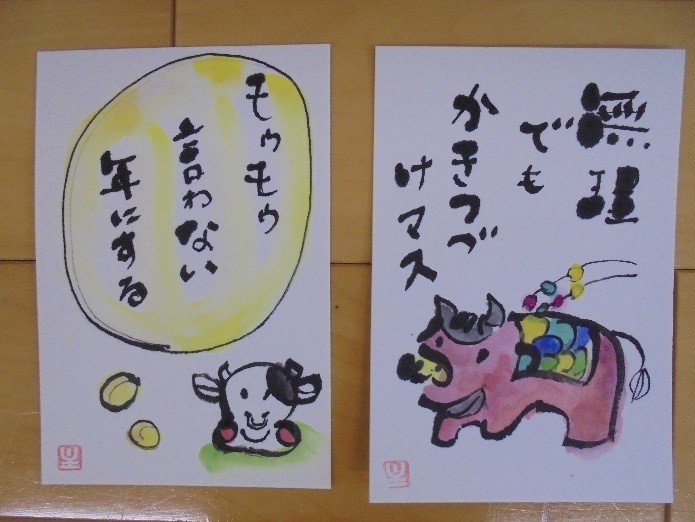 モゥモゥ
言わない
年にする
無理
でも
かきつづ
けマス